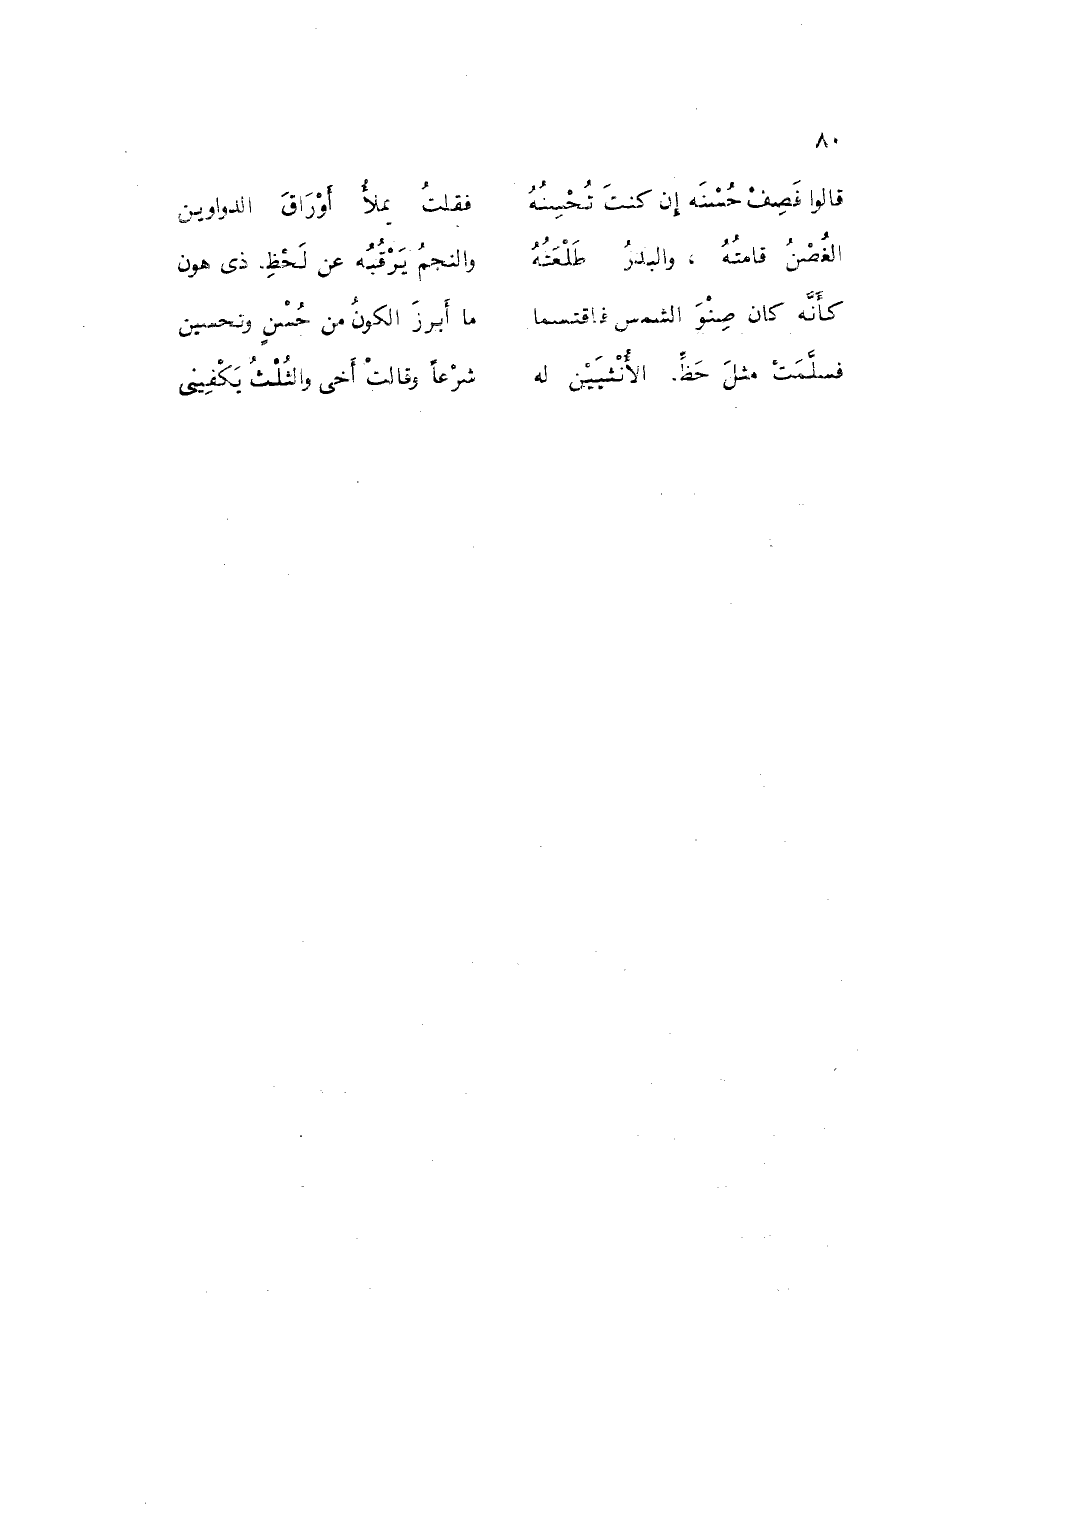 ٨٠
قالوا فَصِفْ حُسْنَه إن كنتَ تُحْسِنُهُ فقلتُ يملأُ أَوْرَاقَ الدواوين
الغُصْنُ قامتُهُ ، والبدرُ طَلْعَتُهُ والنجمُ يَرْقُبُه عن لَحْظِ. ذى هون
كأَنَّه كان صِنْوَ الشمس فاقتسما ما أَبرزَ الكونُ من حُسْنٍ وتحسين
فسلَّمَتْ مثلَ حَظِّ. الأُنْثيَيْن له شرْعاً وقالتْ أَخى والثُلْثُ يَكْفِينى